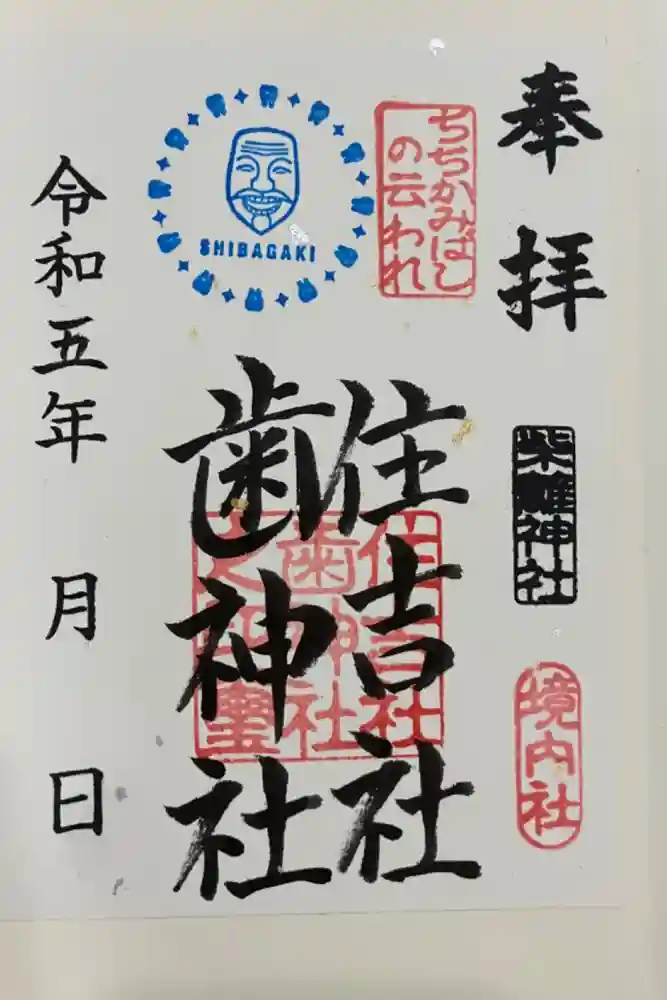 奉拝
柴籬神社
境内社
ちちかみばし
の云われ
SHIBAGAKI
住吉社
歯神社
住吉社
歯神社
令和五年 月 日